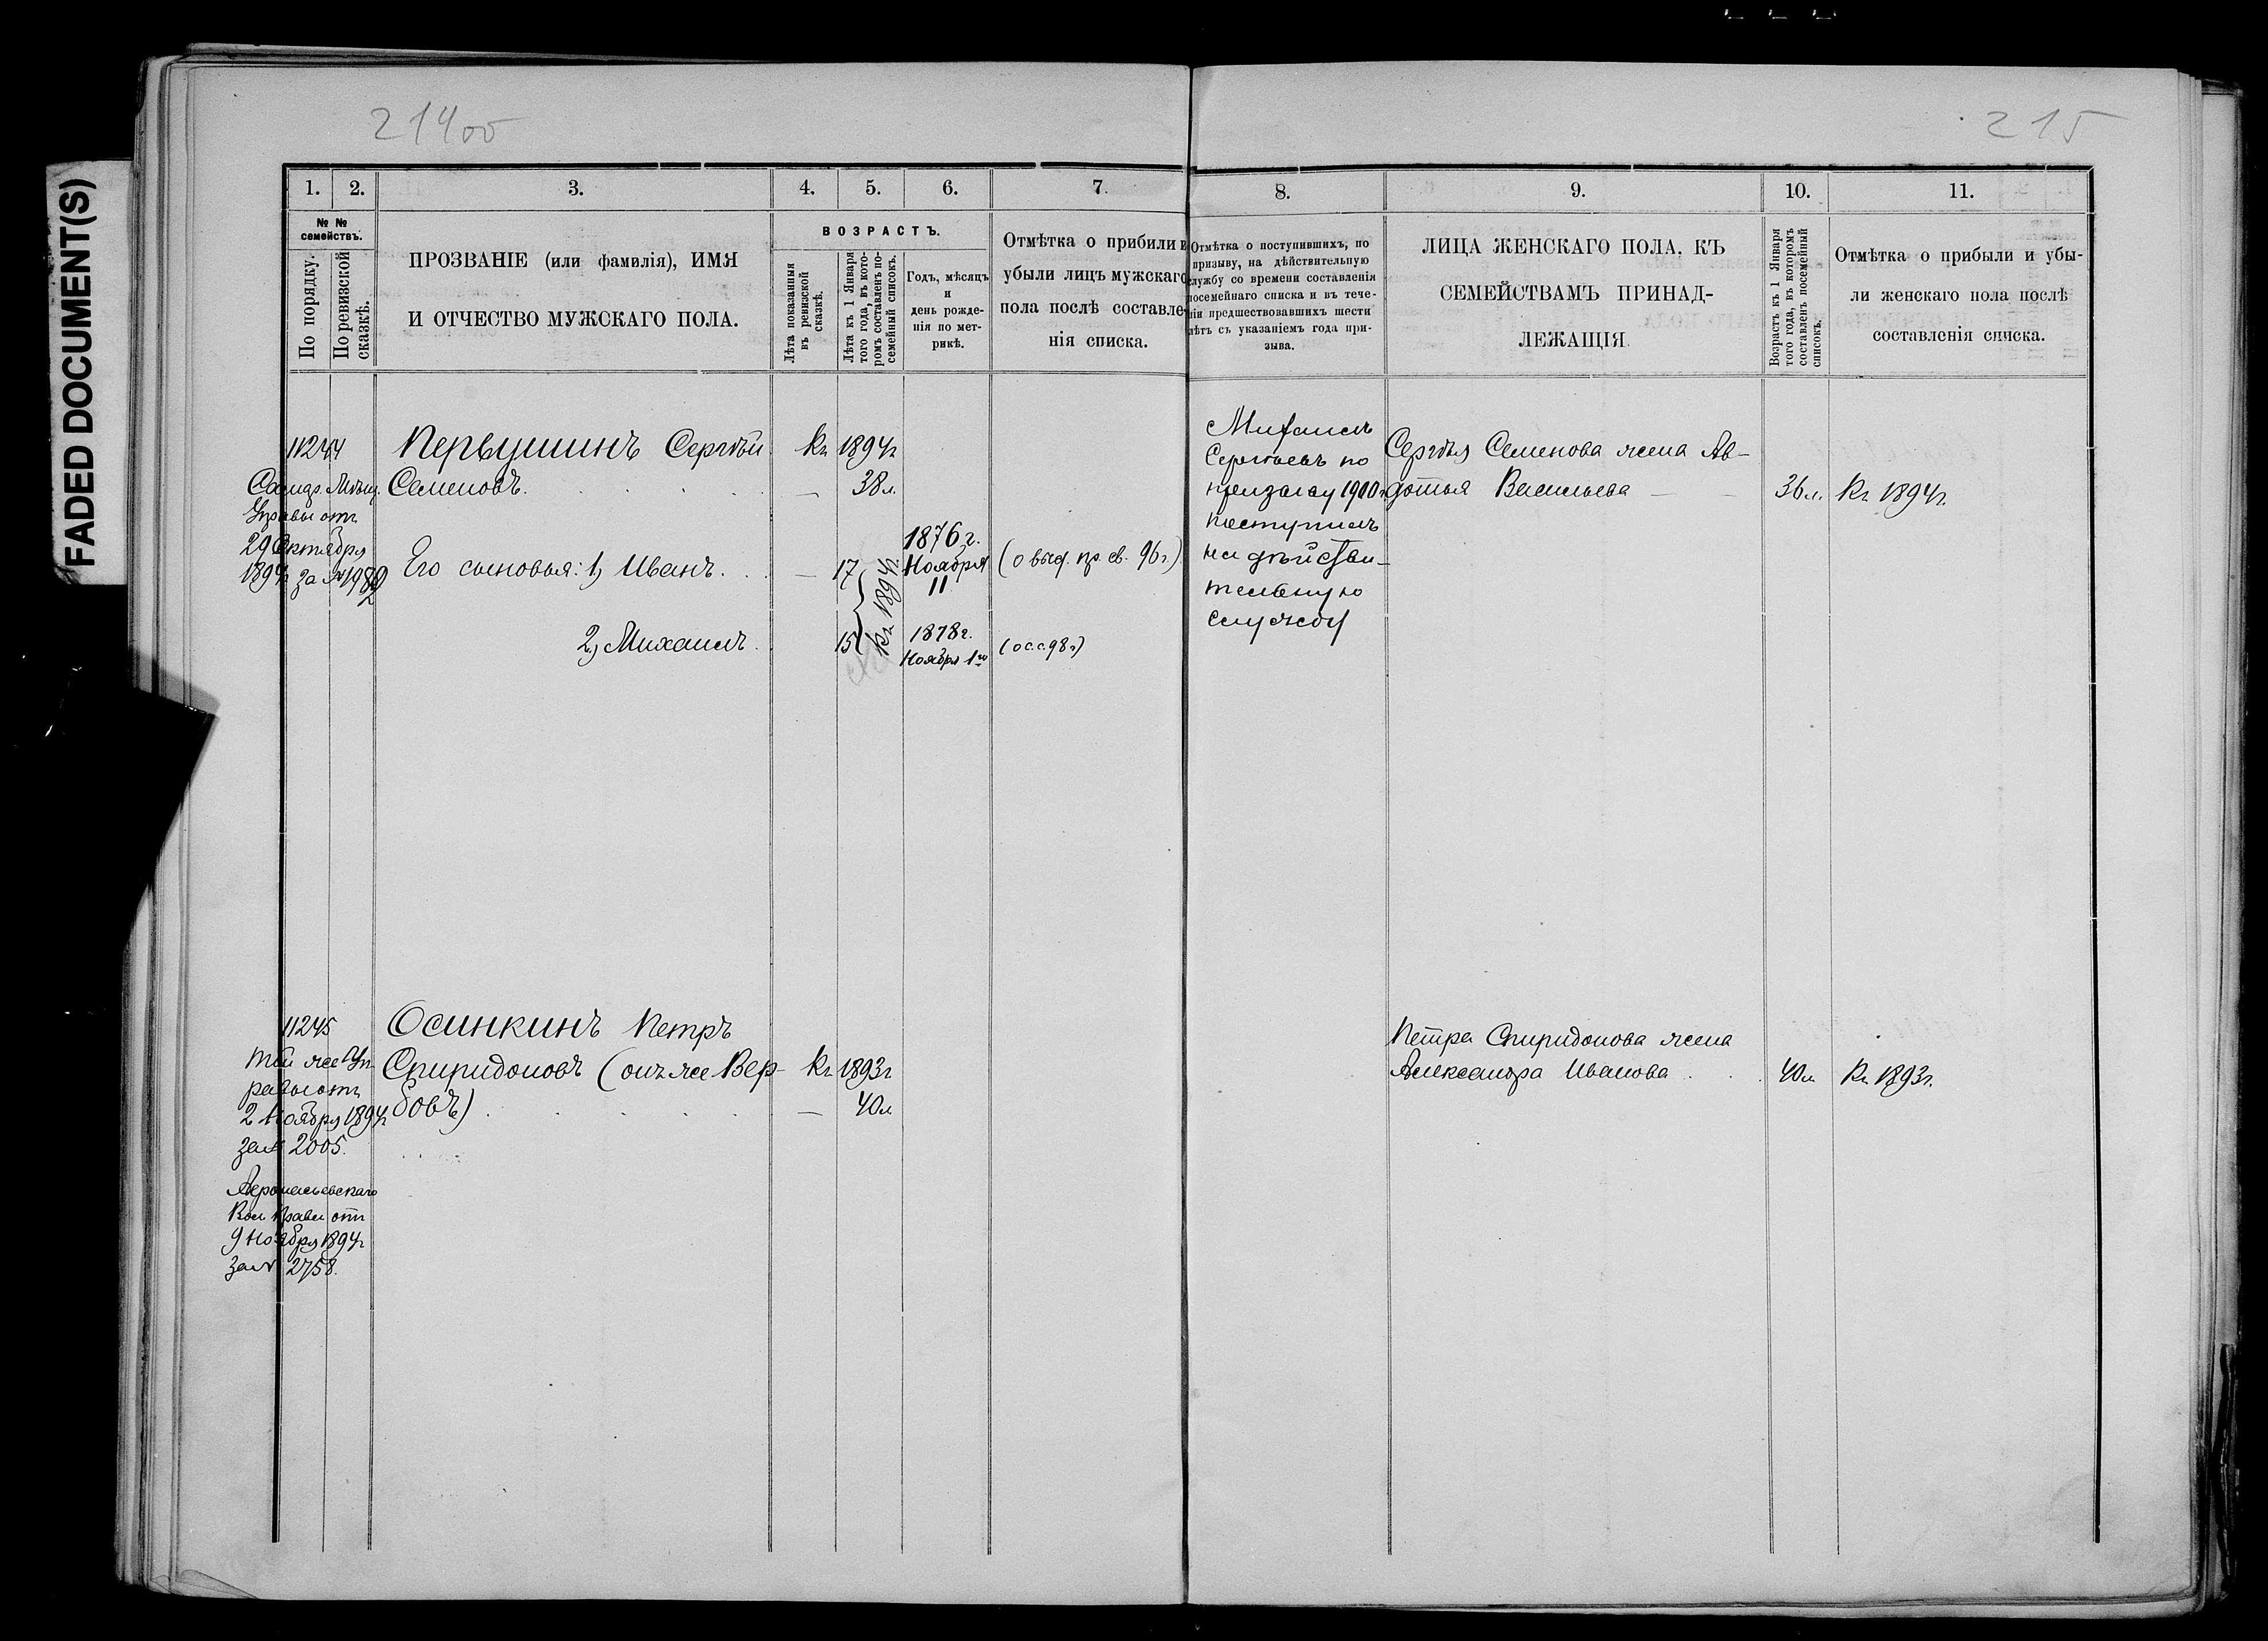 FADED DOCUMENT(S)
214об
215
1. 2. 3. 4. 5. 6. 7. 8. 9. 10. 11.
№ №
семействъ.
По порядку.
По ревизской
сказкѣ.
ПРОЗВАНІЕ (или фамилія), ИМЯ
И ОТЧЕСТВО МУЖСКАГО ПОЛА.
ВОЗРАСТЪ.
Лѣта показанныя
въ ревизской
сказкѣ.
Лѣта къ 1 Января
того года, въ кото-
ромъ составленъ по-
семейный списокъ.
Годъ, мѣсяцъ
и
день рожде-
нія по мет-
рикѣ.
Отмѣтка о прибыли и
убыли лицъ мужскаго
пола послѣ составле-
нія списка.
Отмѣтка о поступившихъ, по
призыву, на дѣйствительную
службу со времени составленія
посемейнаго списка и въ тече-
ніи предшествовавшихъ шести
лѣтъ съ указаніемъ года при-
зыва.
ЛИЦА ЖЕНСКАГО ПОЛА, КЪ
СЕМЕЙСТВАМЪ ПРИНАД-
ЛЕЖАЩІЯ.
Возрастъ къ 1 Января
того года, въ которомъ
составленъ посемейный
списокъ.
Отмѣтка о прибыли и убы-
ли женскаго пола послѣ
составленія списка.
11244
Мѣщ.
Управы отъ
29 Октября
1894г за №
Первушинъ Сергѣй
Семеновъ.
Къ 1894г
38л.
Его сыновья: 1, Иванъ.
17
1876г.
Ноября
11
(о выд. пр. св. 96г.)
2, Михаилъ.
15
Къ 1894г.
1878г.
Ноября 1го
(о с.с. 98г)
Михаилъ
Сергѣевъ по
призыву 1900г
поступилъ
на дѣйстви-
тельную
службу
Сергѣя Семенова жена Ав-
дотья Васильева
36л.
Къ 1894г.
11245
Той же Уп-
равы отъ
2 Ноября 1894г
за № 2005.
Вол Правл отъ
9 Ноября 1894г
за № 2758.
Осинкинъ Петръ
Спиридоновъ (онъ же Вер-
бовъ)
Къ 1893г
40л
Петра Спиридонова жена
Александра Иванова
40л
Къ 1893г.